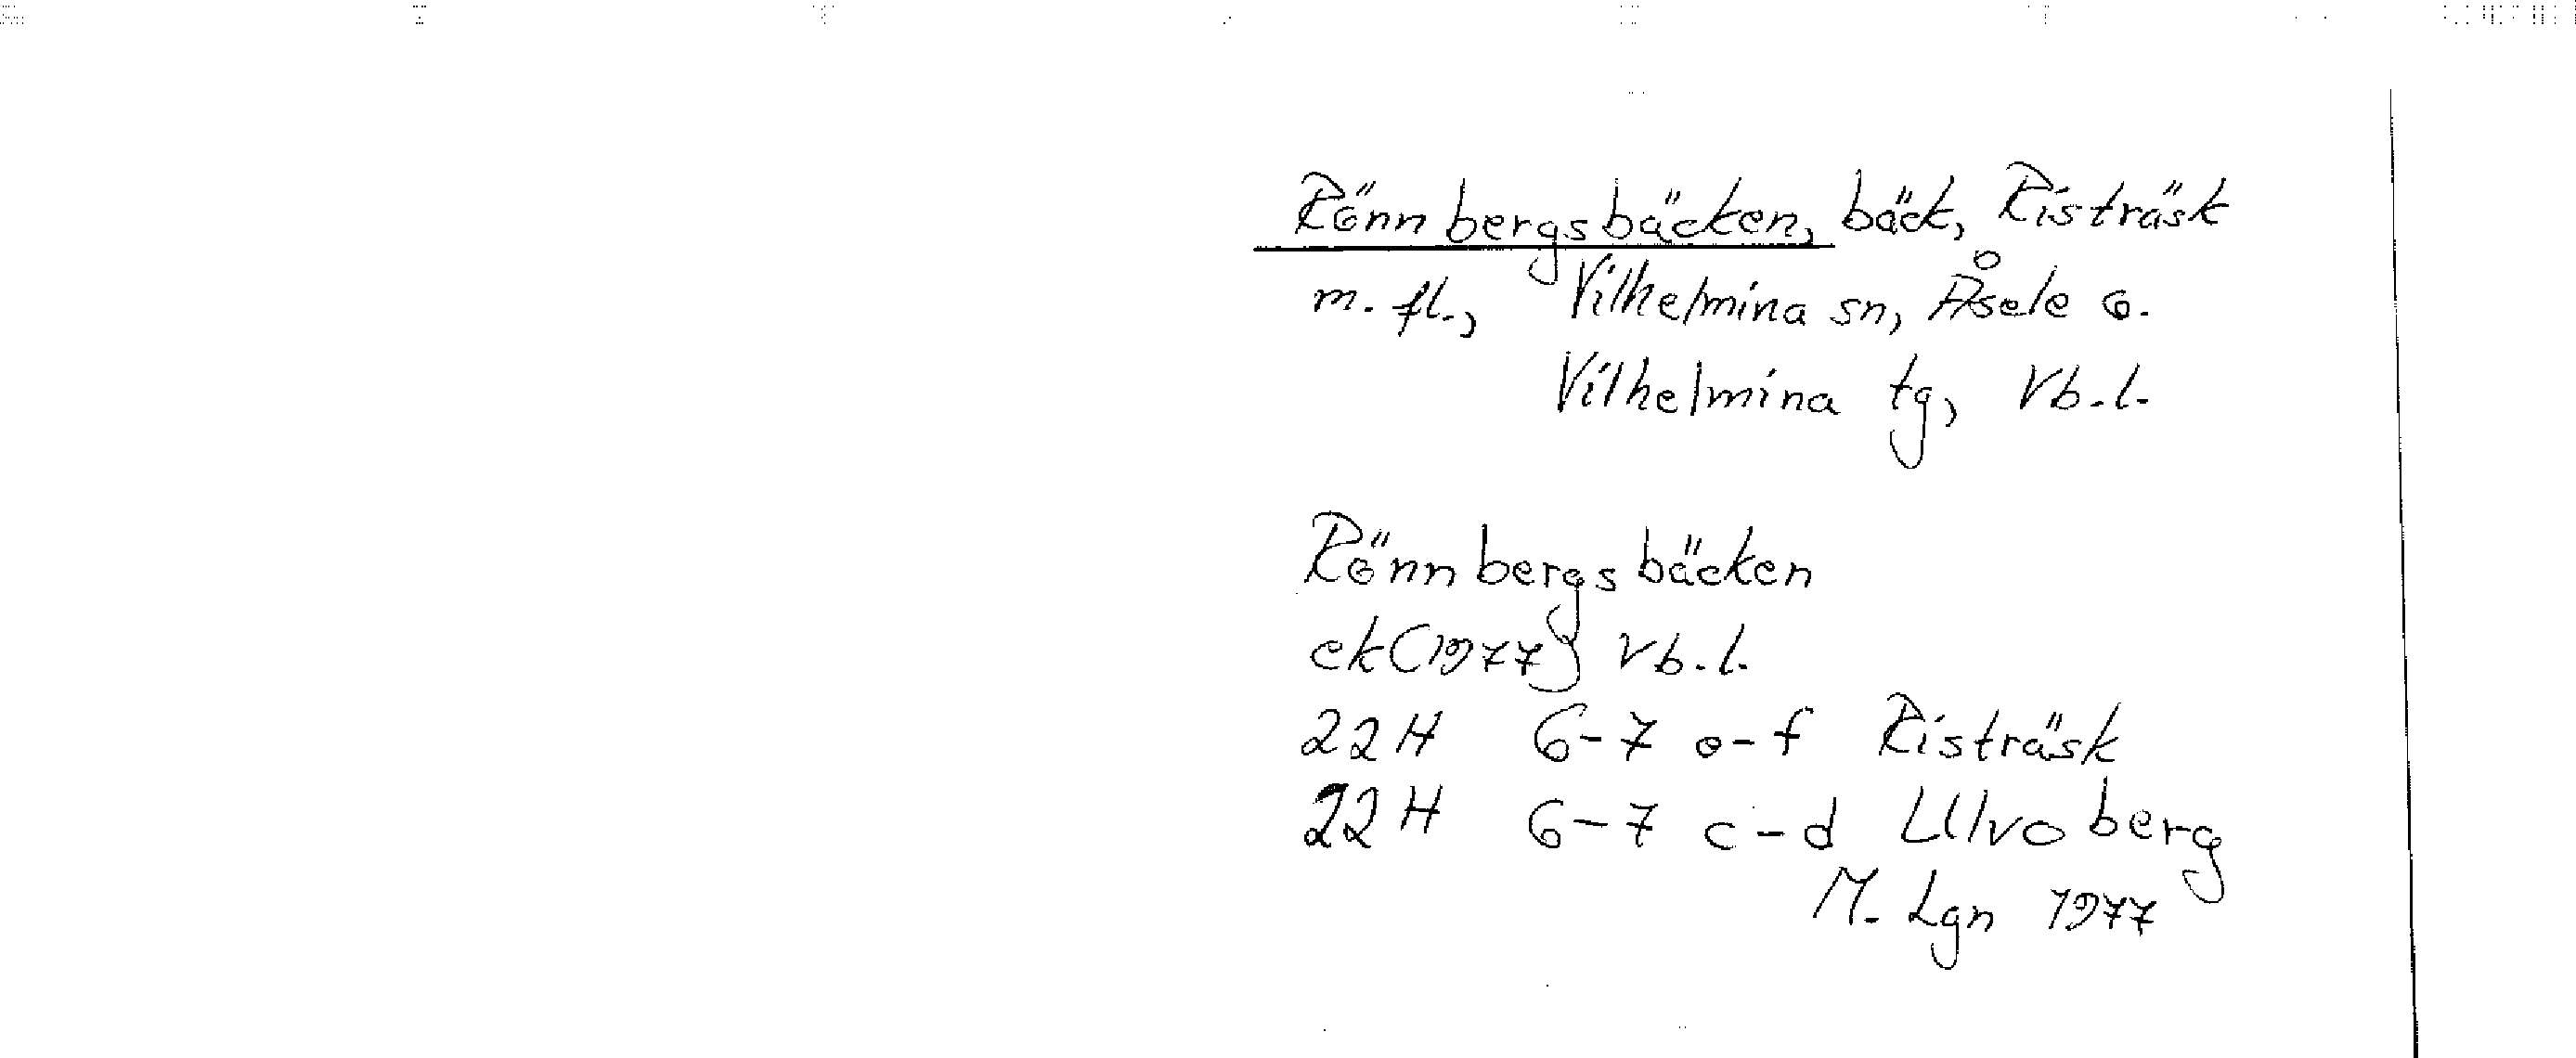 Rönnbergsbäcken, bäck, Risträsk
m. fl., Vilhelmina sn, Åsele o.
Vilhelmina tg, Vb. l.
Rönnbergsbäcken
ek (1977) Vb. l.
22 H 6-7 e-f Risträsk
22 H 6-7 c-d Ulvoberg
M. Lgn 1977